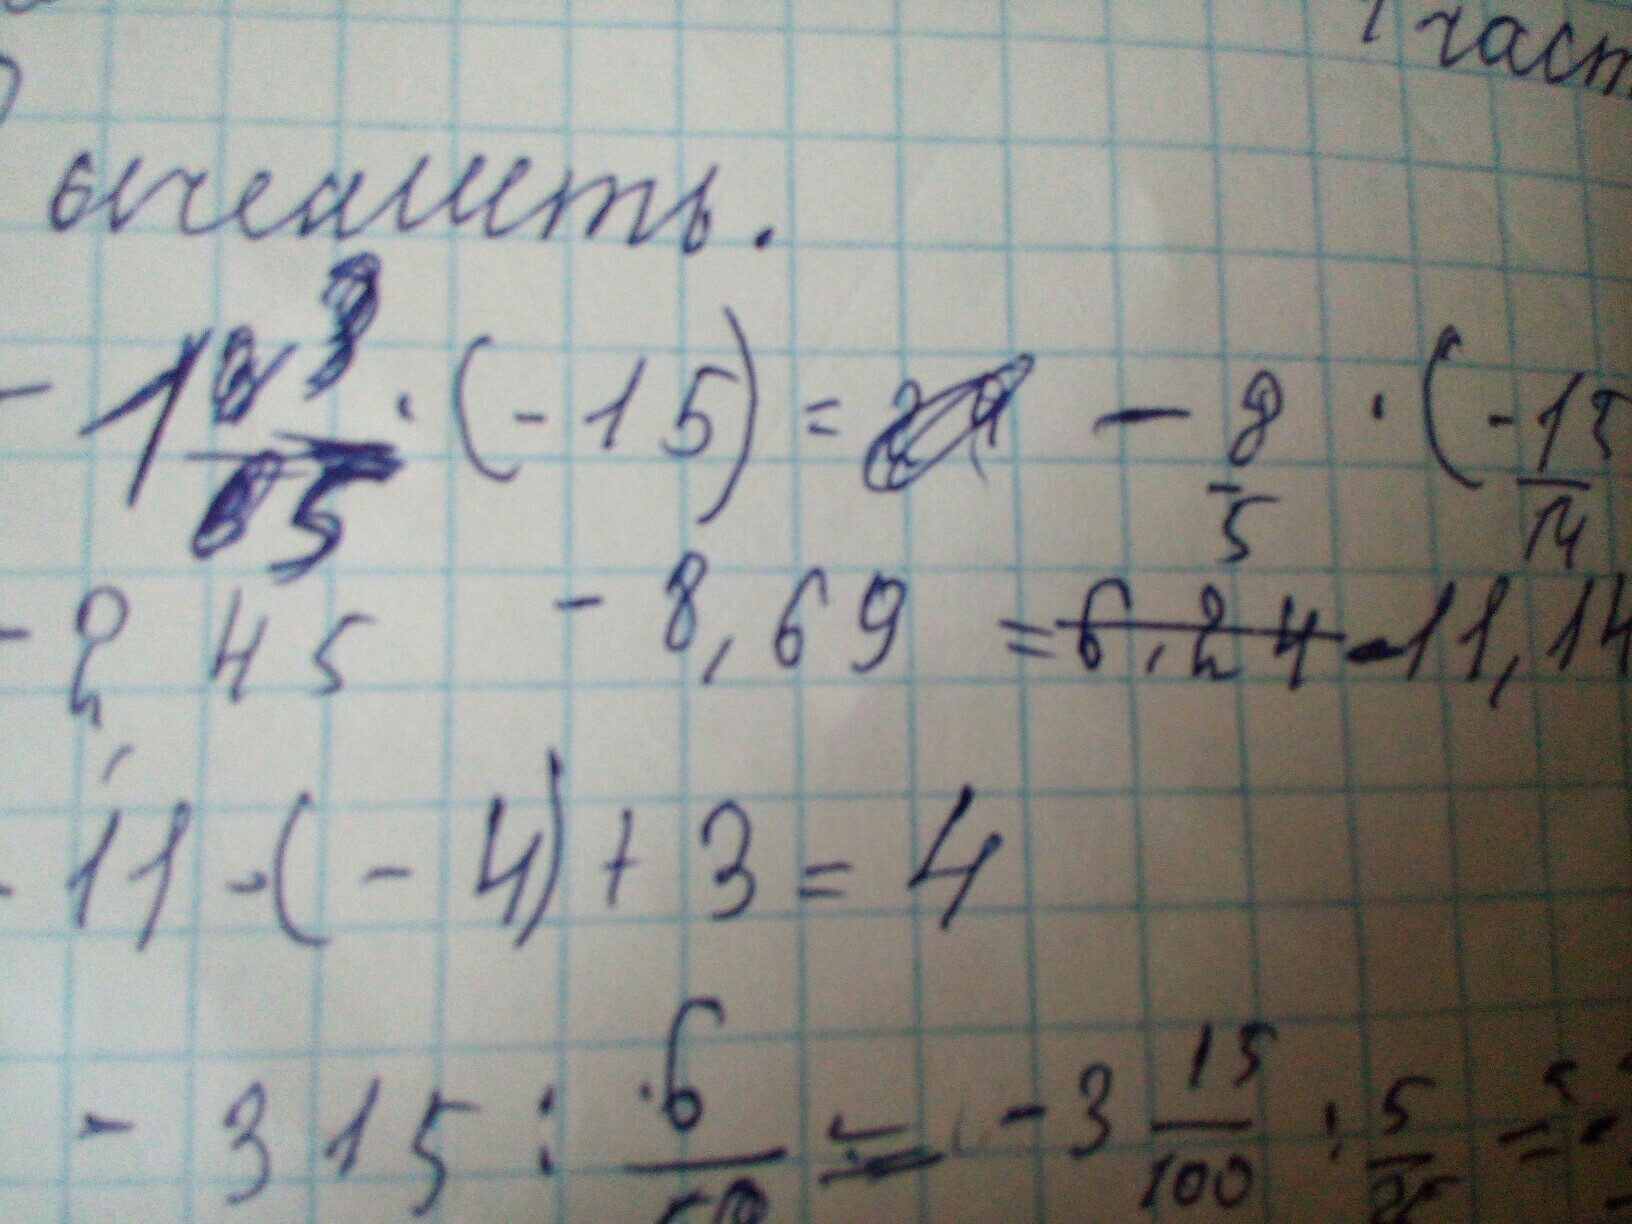 1 част
ычеслить.
- 1 3/5 · (-15) = - 8/5 · (-15
- 2,45 - 8,69 = 6,24 -11,14
- 11 - (- 4) + 3 = 4
- 3 15 : 6 = - 3 15/100 : 5/25 =